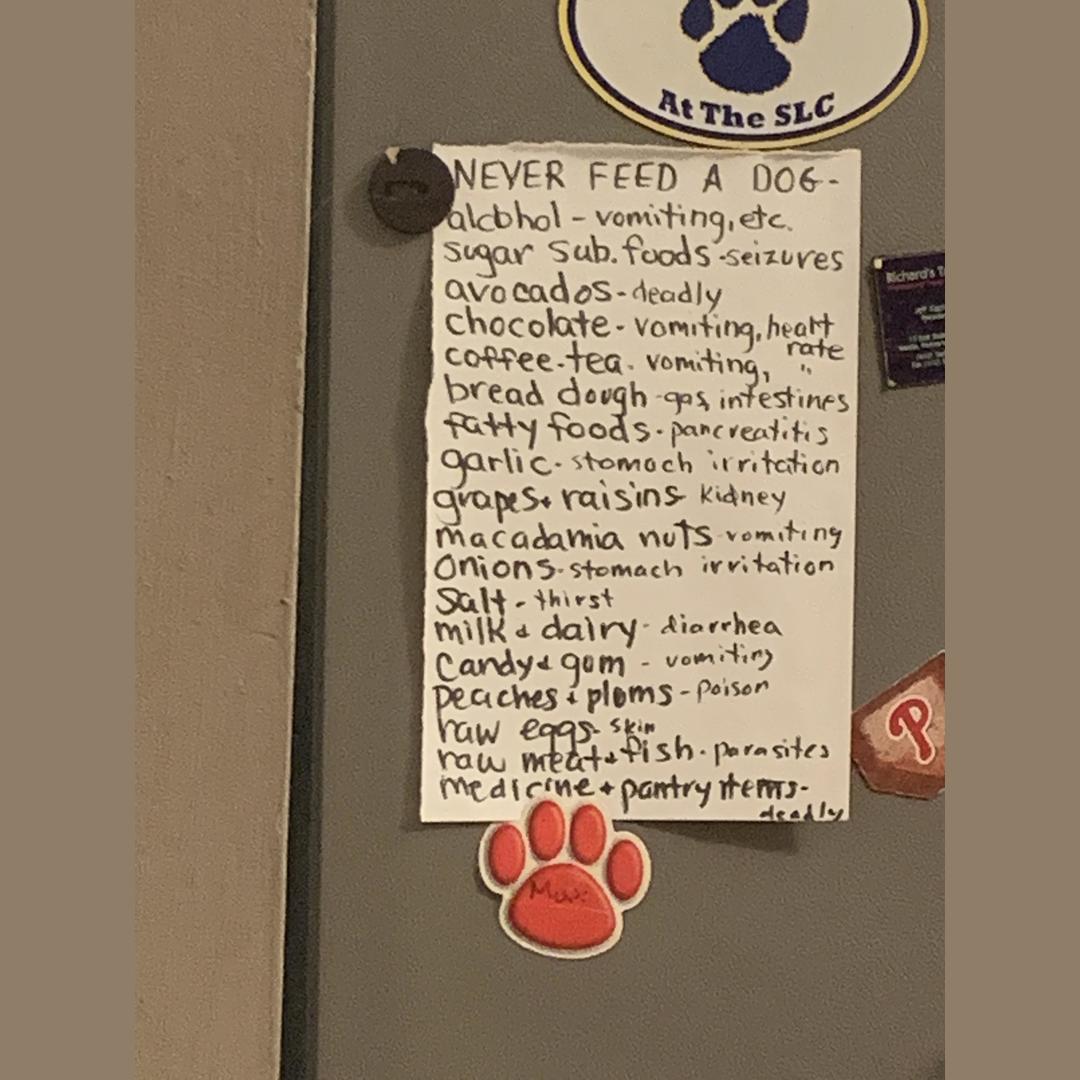 At The SLC
NEVER FEED A DOG-
alcohol - vomiting, etc.
sugar sub. foods - seizures
avocados - deadly
chocolate - vomiting, heart
rate
coffee - tea - vomiting, "
bread dough - gas, intestines
fatty foods - pancreatitis
garlic - stomach irritation
grapes + raisins - kidney
macadamia nuts - vomiting
onions - stomach irritation
salt - thirst
milk + dairy - diarrhea
candy + gum - vomiting
peaches + plums - poison
raw eggs - skin
raw meat + fish - parasites
medicine + pantry items -
deadly
Richard's
P